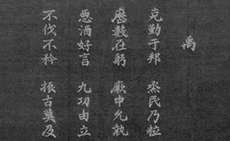 禹
克勤于邦 烝民乃粒
厯數在躬 厥中允執
惡酒好言 九功由立
不伐不矜 振古莫及